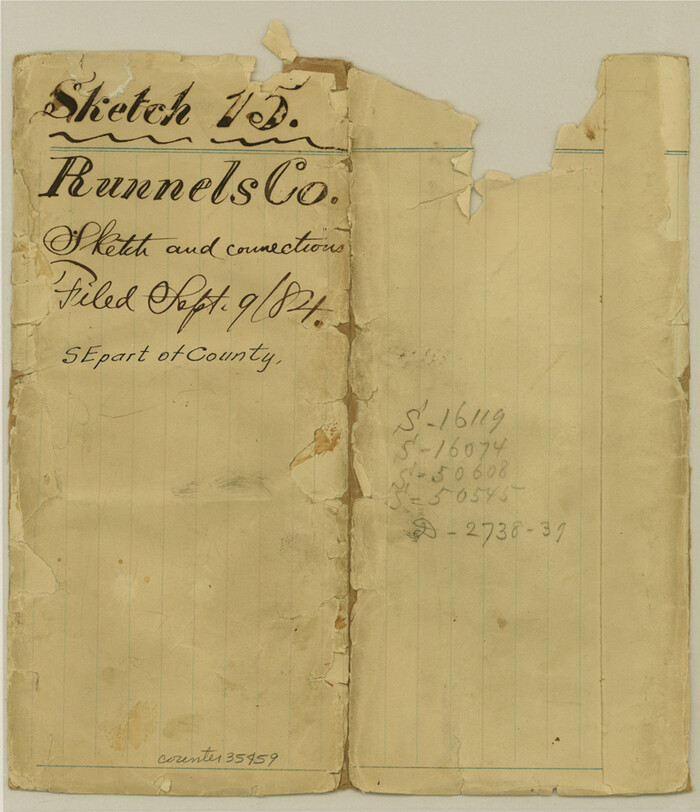 Sketch 15.
Runnels Co.
Sketch and connections
Filed Sept. 9/84.
SE part of County.
S-16119
S-16074
S-50608
S-50545
D-2738-39
counter 35459